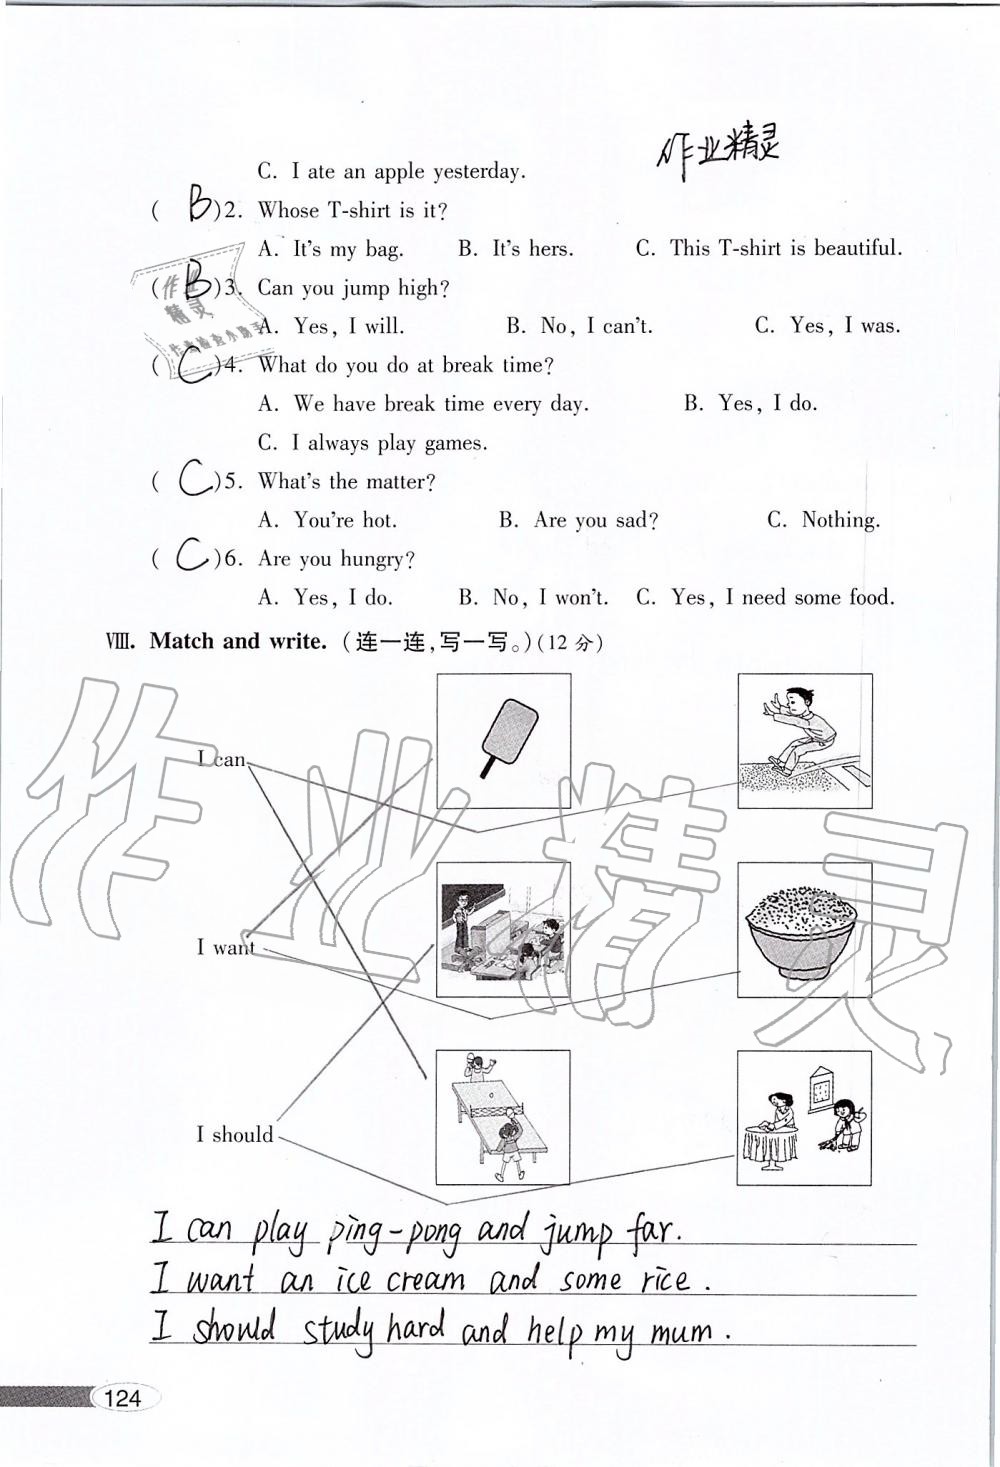 作业精灵
C. I ate an apple yesterday.
( B )2. Whose T-shirt is it?
A. It's my bag. B. It's hers. C. This T-shirt is beautiful.
( B )3. Can you jump high?
A. Yes, I will. B. No, I can't. C. Yes, I was.
( C )4. What do you do at break time?
A. We have break time every day. B. Yes, I do.
C. I always play games.
( C )5. What's the matter?
A. You're hot. B. Are you sad? C. Nothing.
( C )6. Are you hungry?
A. Yes, I do. B. No, I won't. C. Yes, I need some food.
Ⅷ. Match and write. (连一连,写一写。)(12 分)
I can
I want
I should
作业精灵
I can play ping-pong and jump far.
I want an ice cream and some rice.
I should study hard and help my mum.
124
作业
精灵
作业检查小助手